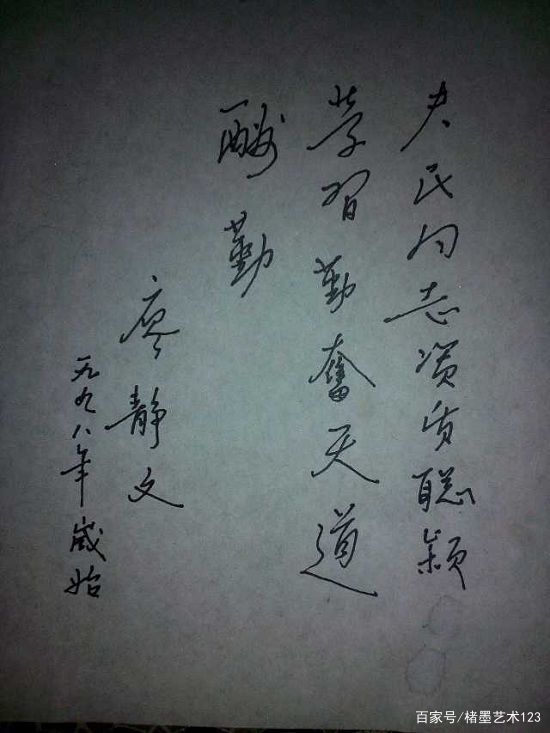 夫民同志资质聪颖
学习勤奋天道
酬勤
廖静文
一九九八年岁始
百家号/楮墨艺术123